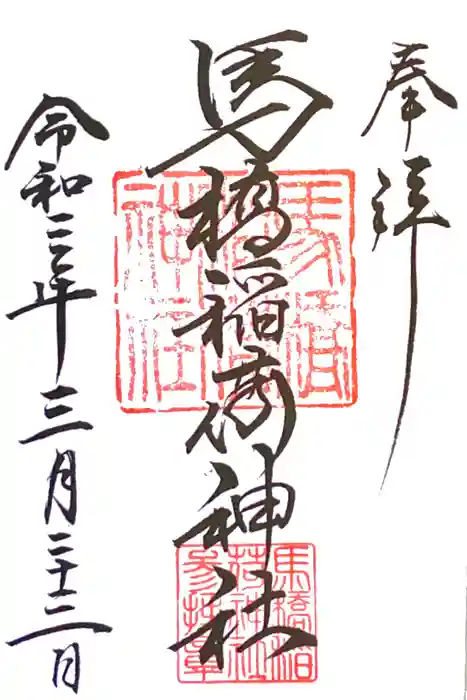 奉拝
馬橋稲荷神社
令和三年三月二十二日
馬橋
稲荷
神社
馬橋稲
荷神社
参拝章